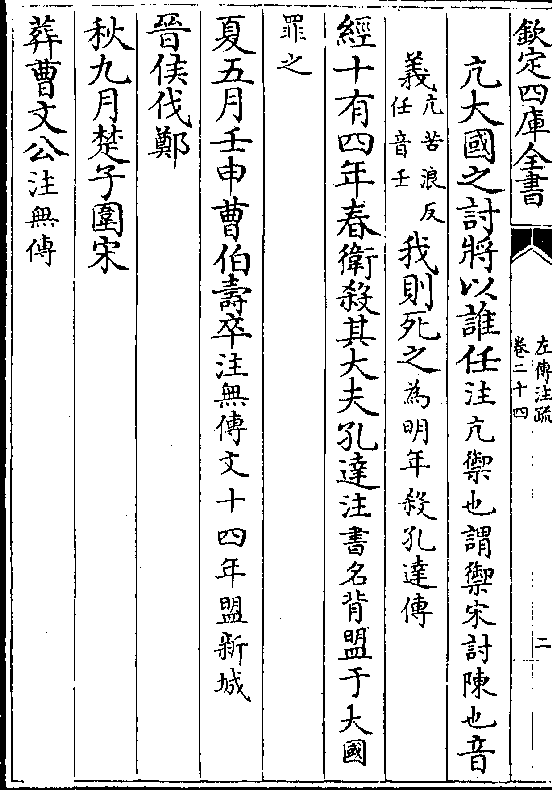 欽定四庫全書
左傳注疏
卷二十四
二
亢大國之討將以誰任注亢禦也謂禦宋討陳也音
義亢苦浪反任音壬我則死之為明年殺孔達傳
經十有四年春衛殺其大夫孔達注書名背盟于大國
罪之
夏五月壬申曹伯壽卒注無傳文十四年盟新城
晉侯伐鄭
秋九月楚子圍宋
葬曹文公注無傳